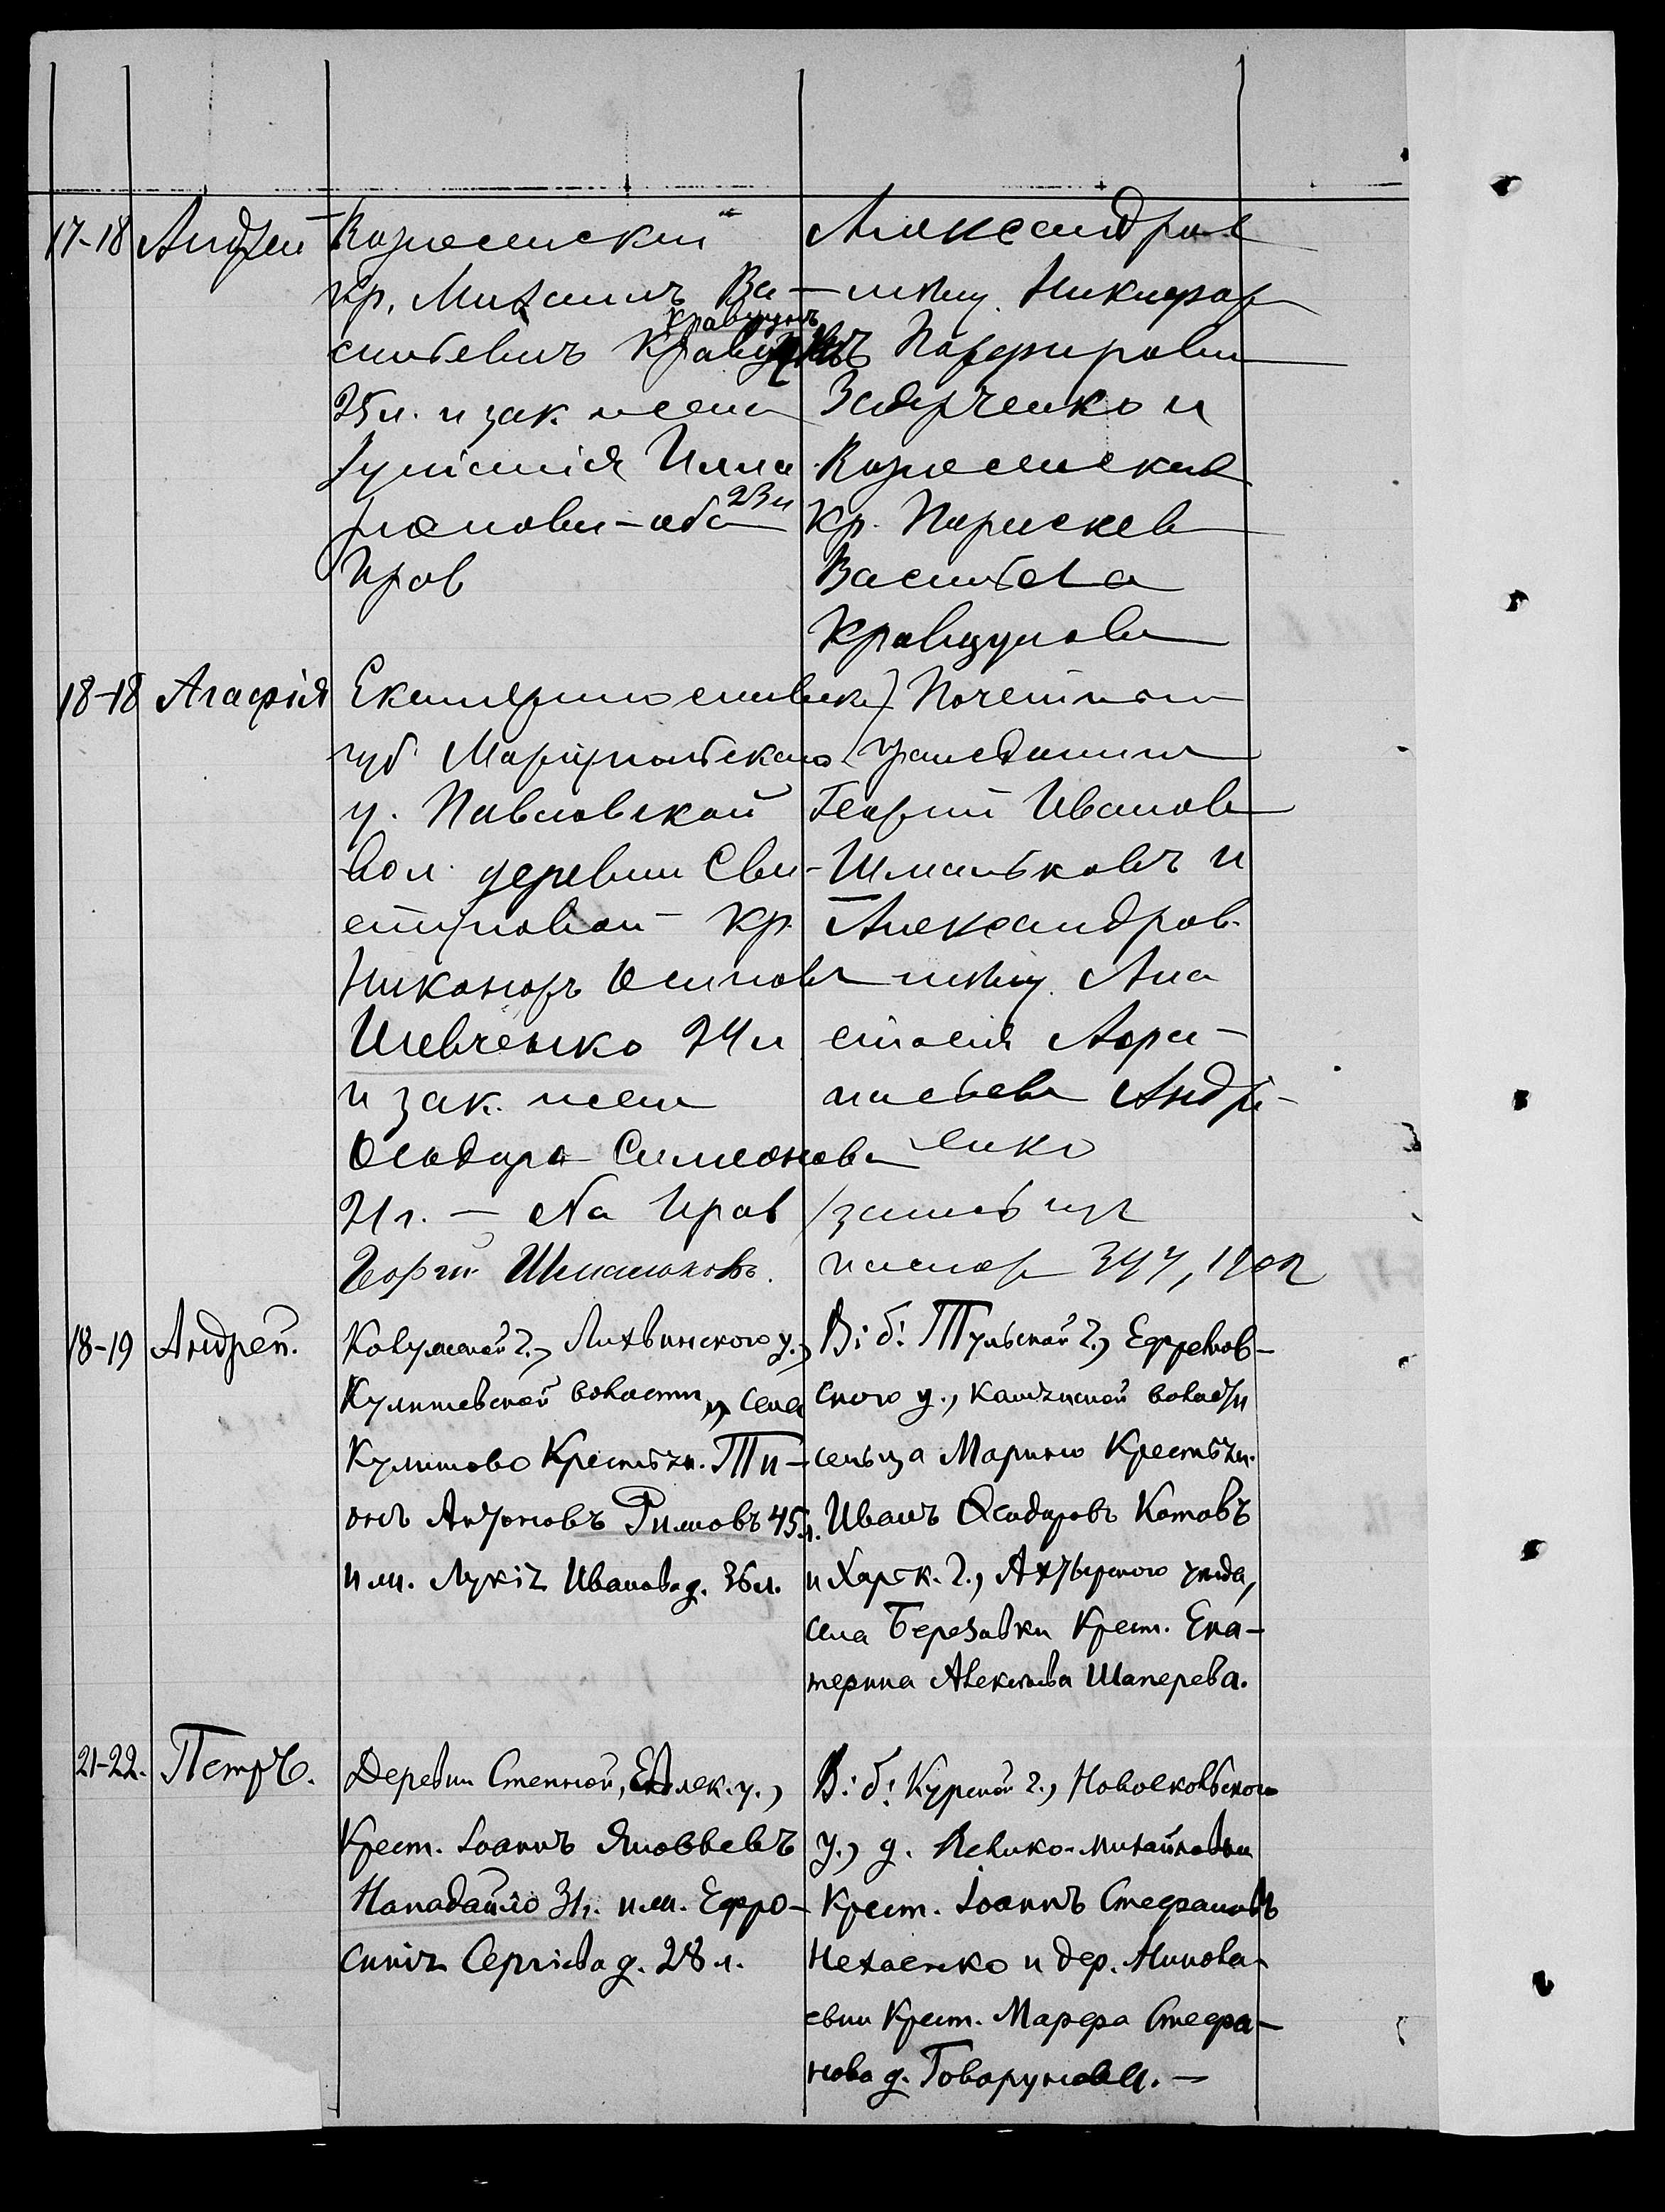 17-18 Андрей Вознесенский
кр. Михаилъ Ва-
кравцунъ
сильевичъ
25 л. и зак. жена
Іуліанія Илла
23 л
ріонова - оба
Прав
Александров
мѣщ. Никифор
Порфирови
Захарченко и
Вознесенская
кр. Параскев
Васильева
Кравцунова
18-18 Агафія Екатеринославск
губ. Маріупольскаго
у. Павловской
вол. деревни Сви-
стуновой кр.
Никаноръ Осиповъ
Шевченко 24 л
и зак. жена
Ѳеодора Симеонова
21 г. — оба Прав
Георгій Шмальковъ.
Почетный
гражданинъ
Георгій Иванов
Шмальковъ и
Александров.
мѣщ. Ана
стасія Афа-
насьева Андре-
енко
18-19 Андрей. Калужской г., Лихвинского у.,
Кулешевской волости, села
Кулешово Крестьян. Ти-
онъ Антоновъ Рымовъ 45 л.
и ж. Лукія Иванова д. 36 л.
В: б: Тульской г., Ефремов-
ского у., волости
сельца Марьино Крестьян.
Иванъ Ѳеодоровъ Котовъ
и Харьк. г., Ахтырского уезда,
села Березовки Крест. Ека-
терина Алексеева Шаперева.
21-22. Петръ. Деревни Степной, у.,
Крест. Іоаннъ Яковлевъ
Нападайло 31 г. и ж. Ефро-
синія Сергіева д. 28 л.
В: б: Курской г., Новооскольского
у., д. Велико-Михайловки
Крест. Іоаннъ Стефановъ
Нехаенко и дер. Никола-
евки Крест. Марфа Стефа-
нова д. Говарунова. —